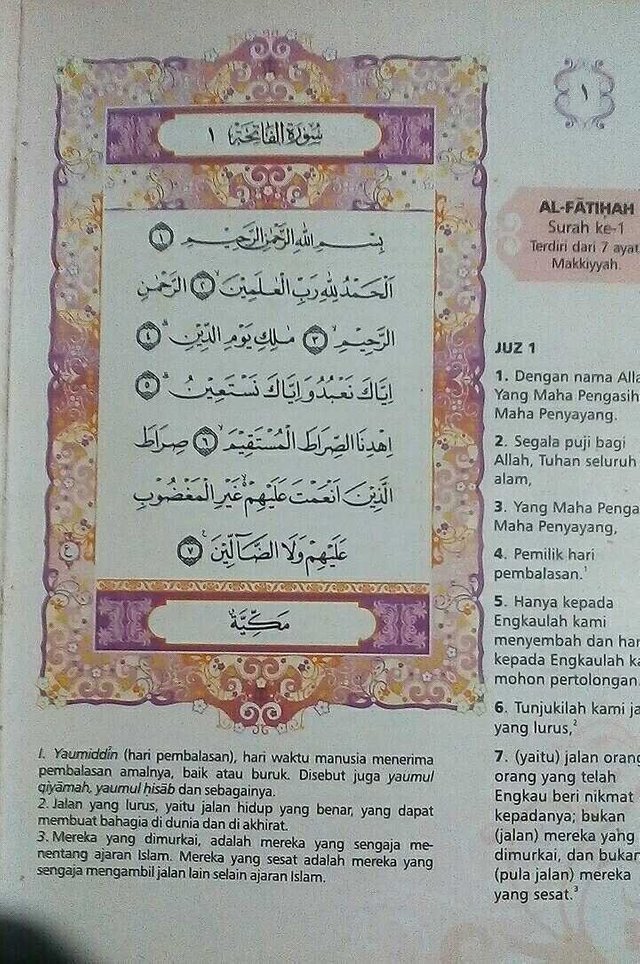 ١
سُورَةُ الْفَاتِحَةِ ١
بِسْمِ اللّٰهِ الرَّحْمٰنِ الرَّحِيْمِ ١
اَلْحَمْدُ لِلّٰهِ رَبِّ الْعٰلَمِيْنَۙ ٢ الرَّحْمٰنِ
الرَّحِيْمِۙ ٣ مٰلِكِ يَوْمِ الدِّيْنِۗ ٤
اِيَّاكَ نَعْبُدُ وَاِيَّاكَ نَسْتَعِيْنُۗ ٥
اِهْدِنَا الصِّرَاطَ الْمُسْتَقِيْمَۙ ٦ صِرَاطَ
الَّذِيْنَ اَنْعَمْتَ عَلَيْهِمْ ەۙ غَيْرِ الْمَغْضُوْبِ
عَلَيْهِمْ وَلَا الضَّاۤلِّيْنَ ٧
ع
مَكِّيَّةٌ
AL-FĀTIḤAH
Surah ke-1
Terdiri dari 7 ayat
Makkiyyah.
JUZ 1
1. Dengan nama
Yang Maha Pengasih
Maha Penyayang.
2. Segala puji bagi
Allah, Tuhan seluruh
alam,
3. Yang Maha
Maha Penyayang,
4. Pemilik hari
pembalasan.¹
5. Hanya kepada
Engkaulah kami
menyembah dan
kepada Engkaulah
mohon pertolongan.
6. Tunjukilah kami
yang lurus,²
7. (yaitu) jalan
orang yang telah
Engkau beri nikmat
kepadanya; bukan
(jalan) mereka yang
dimurkai, dan
(pula jalan) mereka
yang sesat.³
1. Yaumiddīn (hari pembalasan), hari waktu manusia menerima
pembalasan amalnya, baik atau buruk. Disebut juga yaumul
qiyāmah, yaumul ḥisāb dan sebagainya.
2. Jalan yang lurus, yaitu jalan hidup yang benar, yang dapat
membuat bahagia di dunia dan di akhirat.
3. Mereka yang dimurkai, adalah mereka yang sengaja me-
nentang ajaran Islam. Mereka yang sesat adalah mereka yang
sengaja mengambil jalan lain selain ajaran Islam.